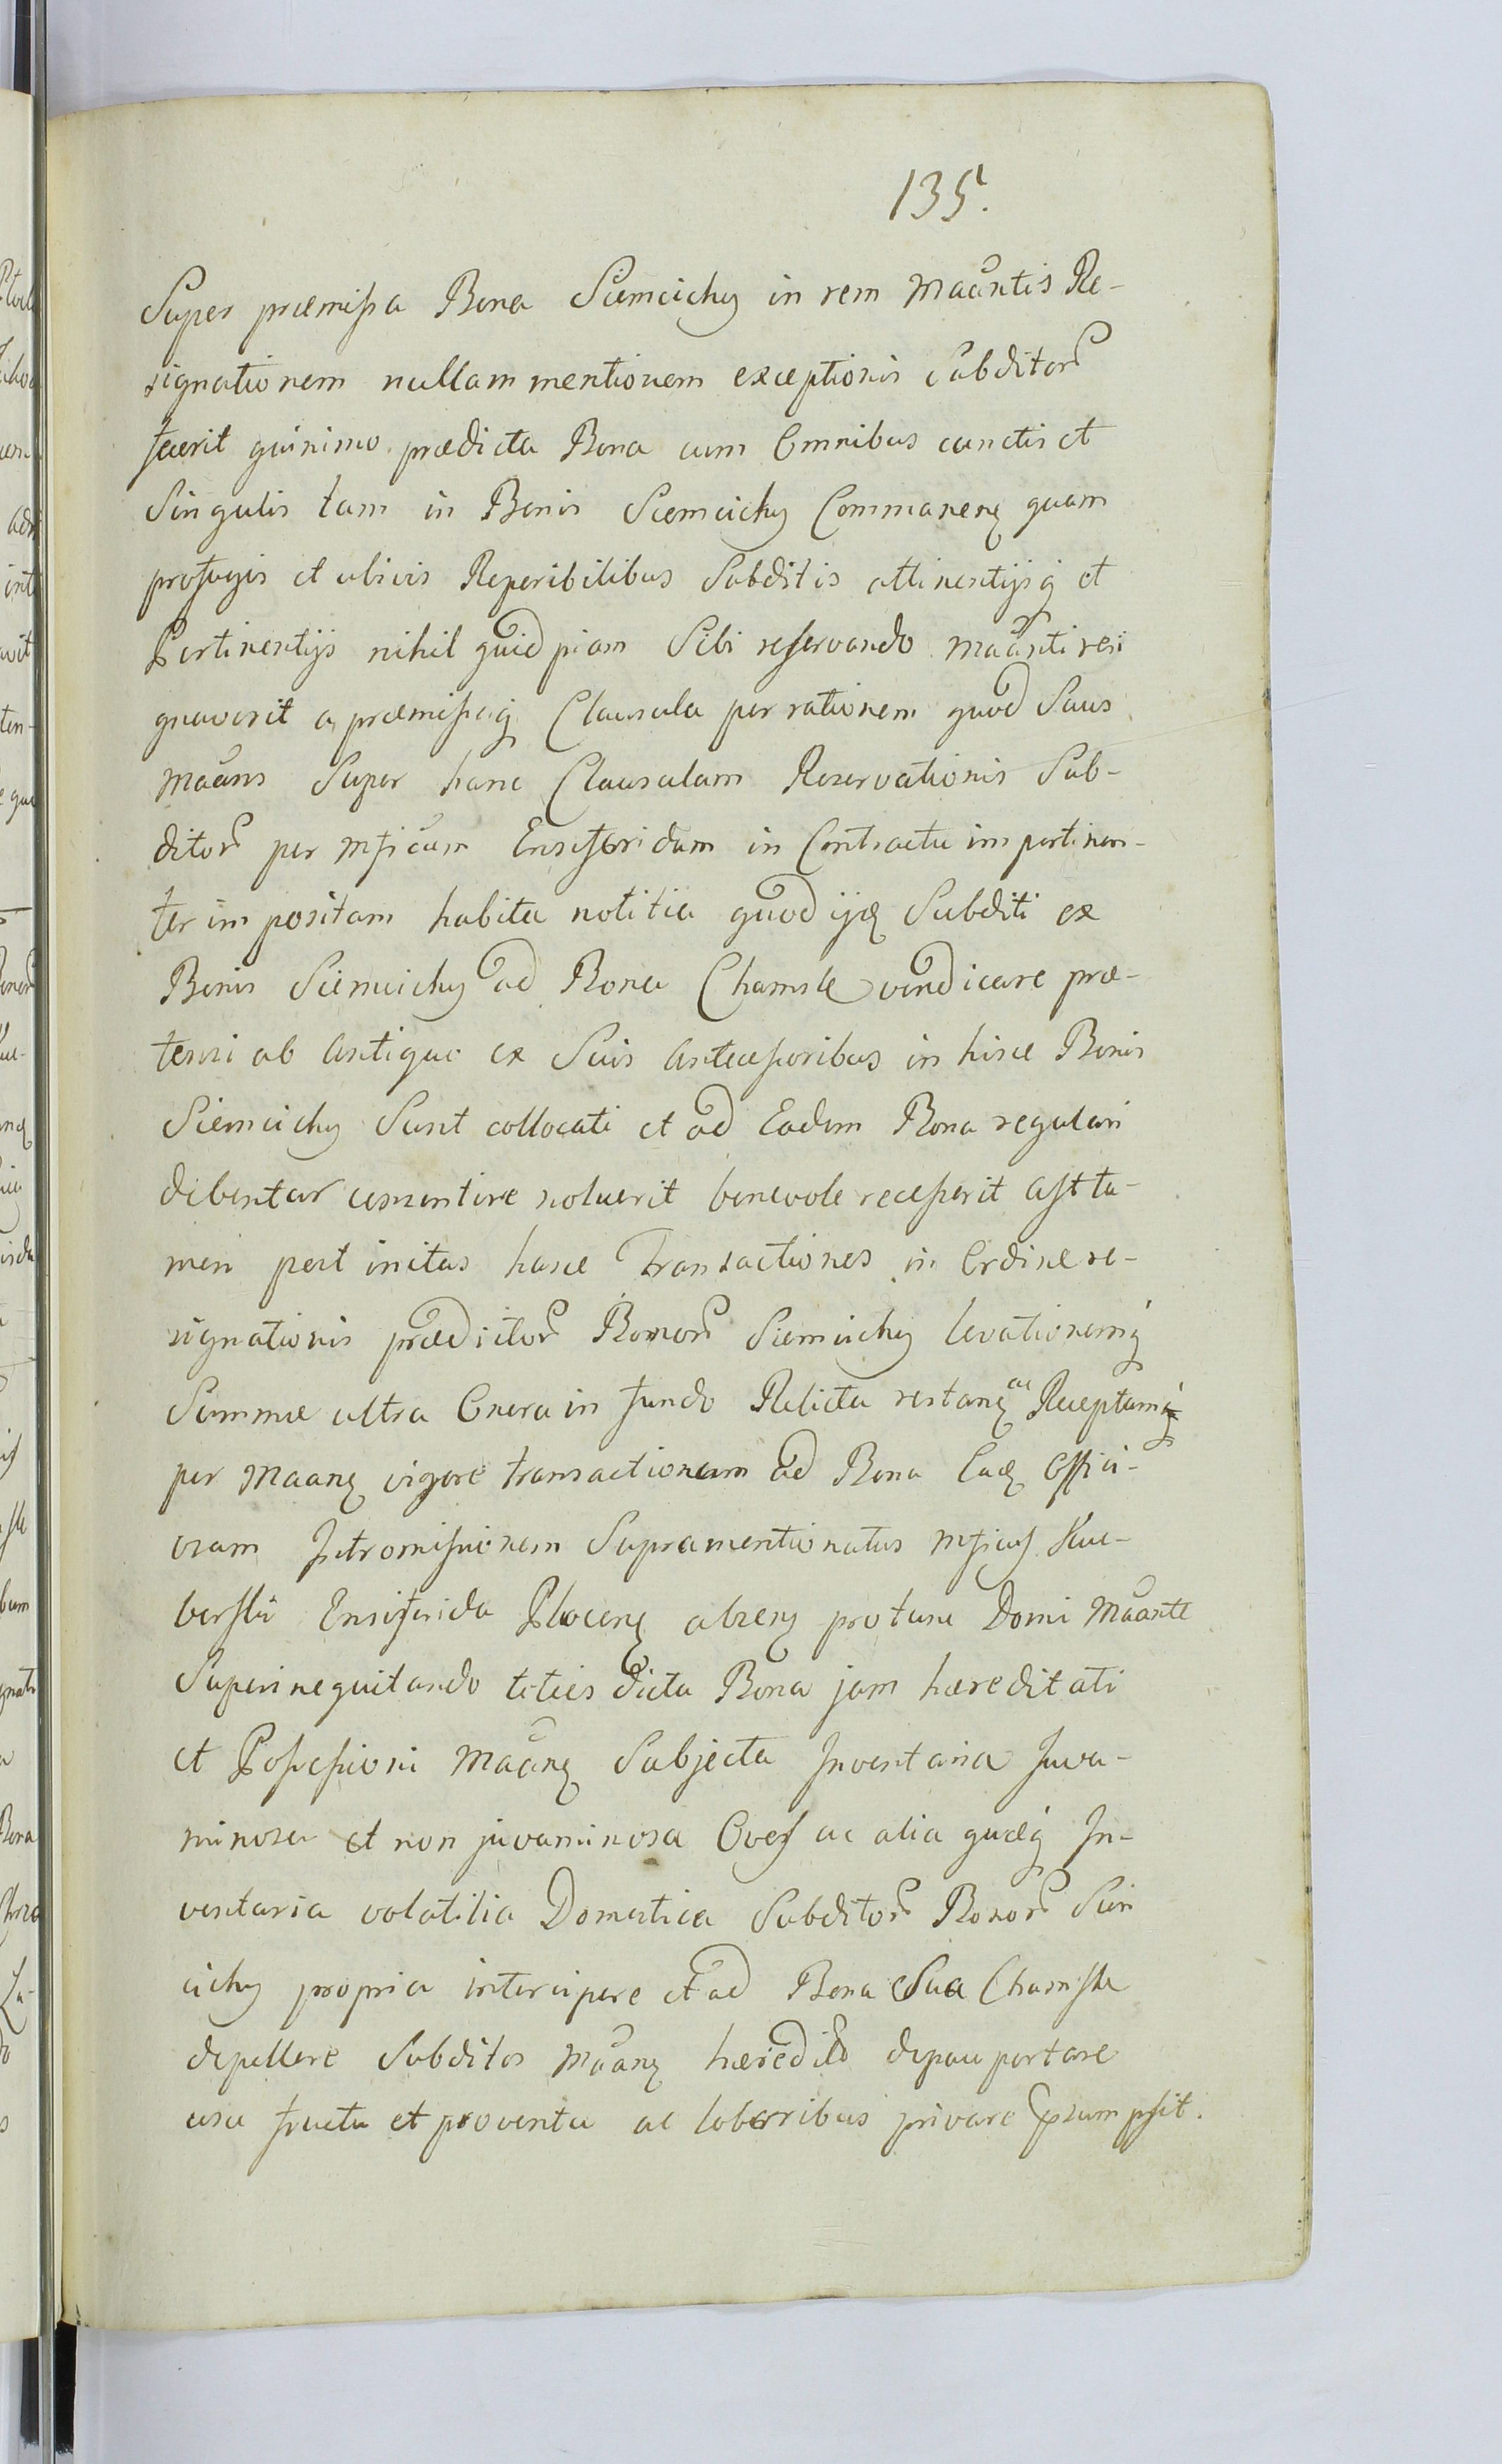 135.
Super præmissa Bona Siemcichy in rem Maantis Re-
signationem nullam mentionem exceptionis Subditor
fecerit quinimo prædicta Bona cum Omnibus cunctis et
Singulis tam in Bonis Siemcichy Commanenɋ quam
profugis et ubivis Reperibilibus Subditis attinentijsq et
Pertinentijs nihil quidpiam Sibi reservando Maanti resi
gnaverit a præmissaq Clausula per rationem quod Saus
Maans Super hanc Clausulam Reservationis Sub-
ditor per Mficum Ensiferidam in Contractu impertinen-
ter impositam habita notitia quod ijdɋ Subditi ex
Bonis Siemcichy ad Bona Chamsk vendicare præ-
tensi ab Antiquo ex Suis Antecessoribus in hisce Bonis
Siemcichy Sunt collocati et ad Eadem Bona regulari
debentur consentire noluerit benevole recesserit Ast ta-
men post initas hasce Transactiones in Ordine re-
signationis prædictor Bonor Siemcichy levationemq
Summæ ultra Onera in fundo Relicta restanɋ ac Receptamq
per Maanɋ vigore transactionum ad Bona Eadɋ Offici-
osam Intromissionem Supramentionatus Mficus
Ensiferida Plocenɋ absenɋ protunc Domi Maante
Superinequitando toties dicta Bona jam hæreditati
et Possessioni Maanɋ Subjecta Inventaria Juva-
minosa et non juvaminosa Oves ac alia quæq In-
ventaria volatilia Domestica Subditor Bonor Siem
cichy propria intercipere et ad Bona Sua Chamsk
depellere Subditos Maanɋ depauperare
usu fructu et proventu ac laboribus privare præsumpsit.